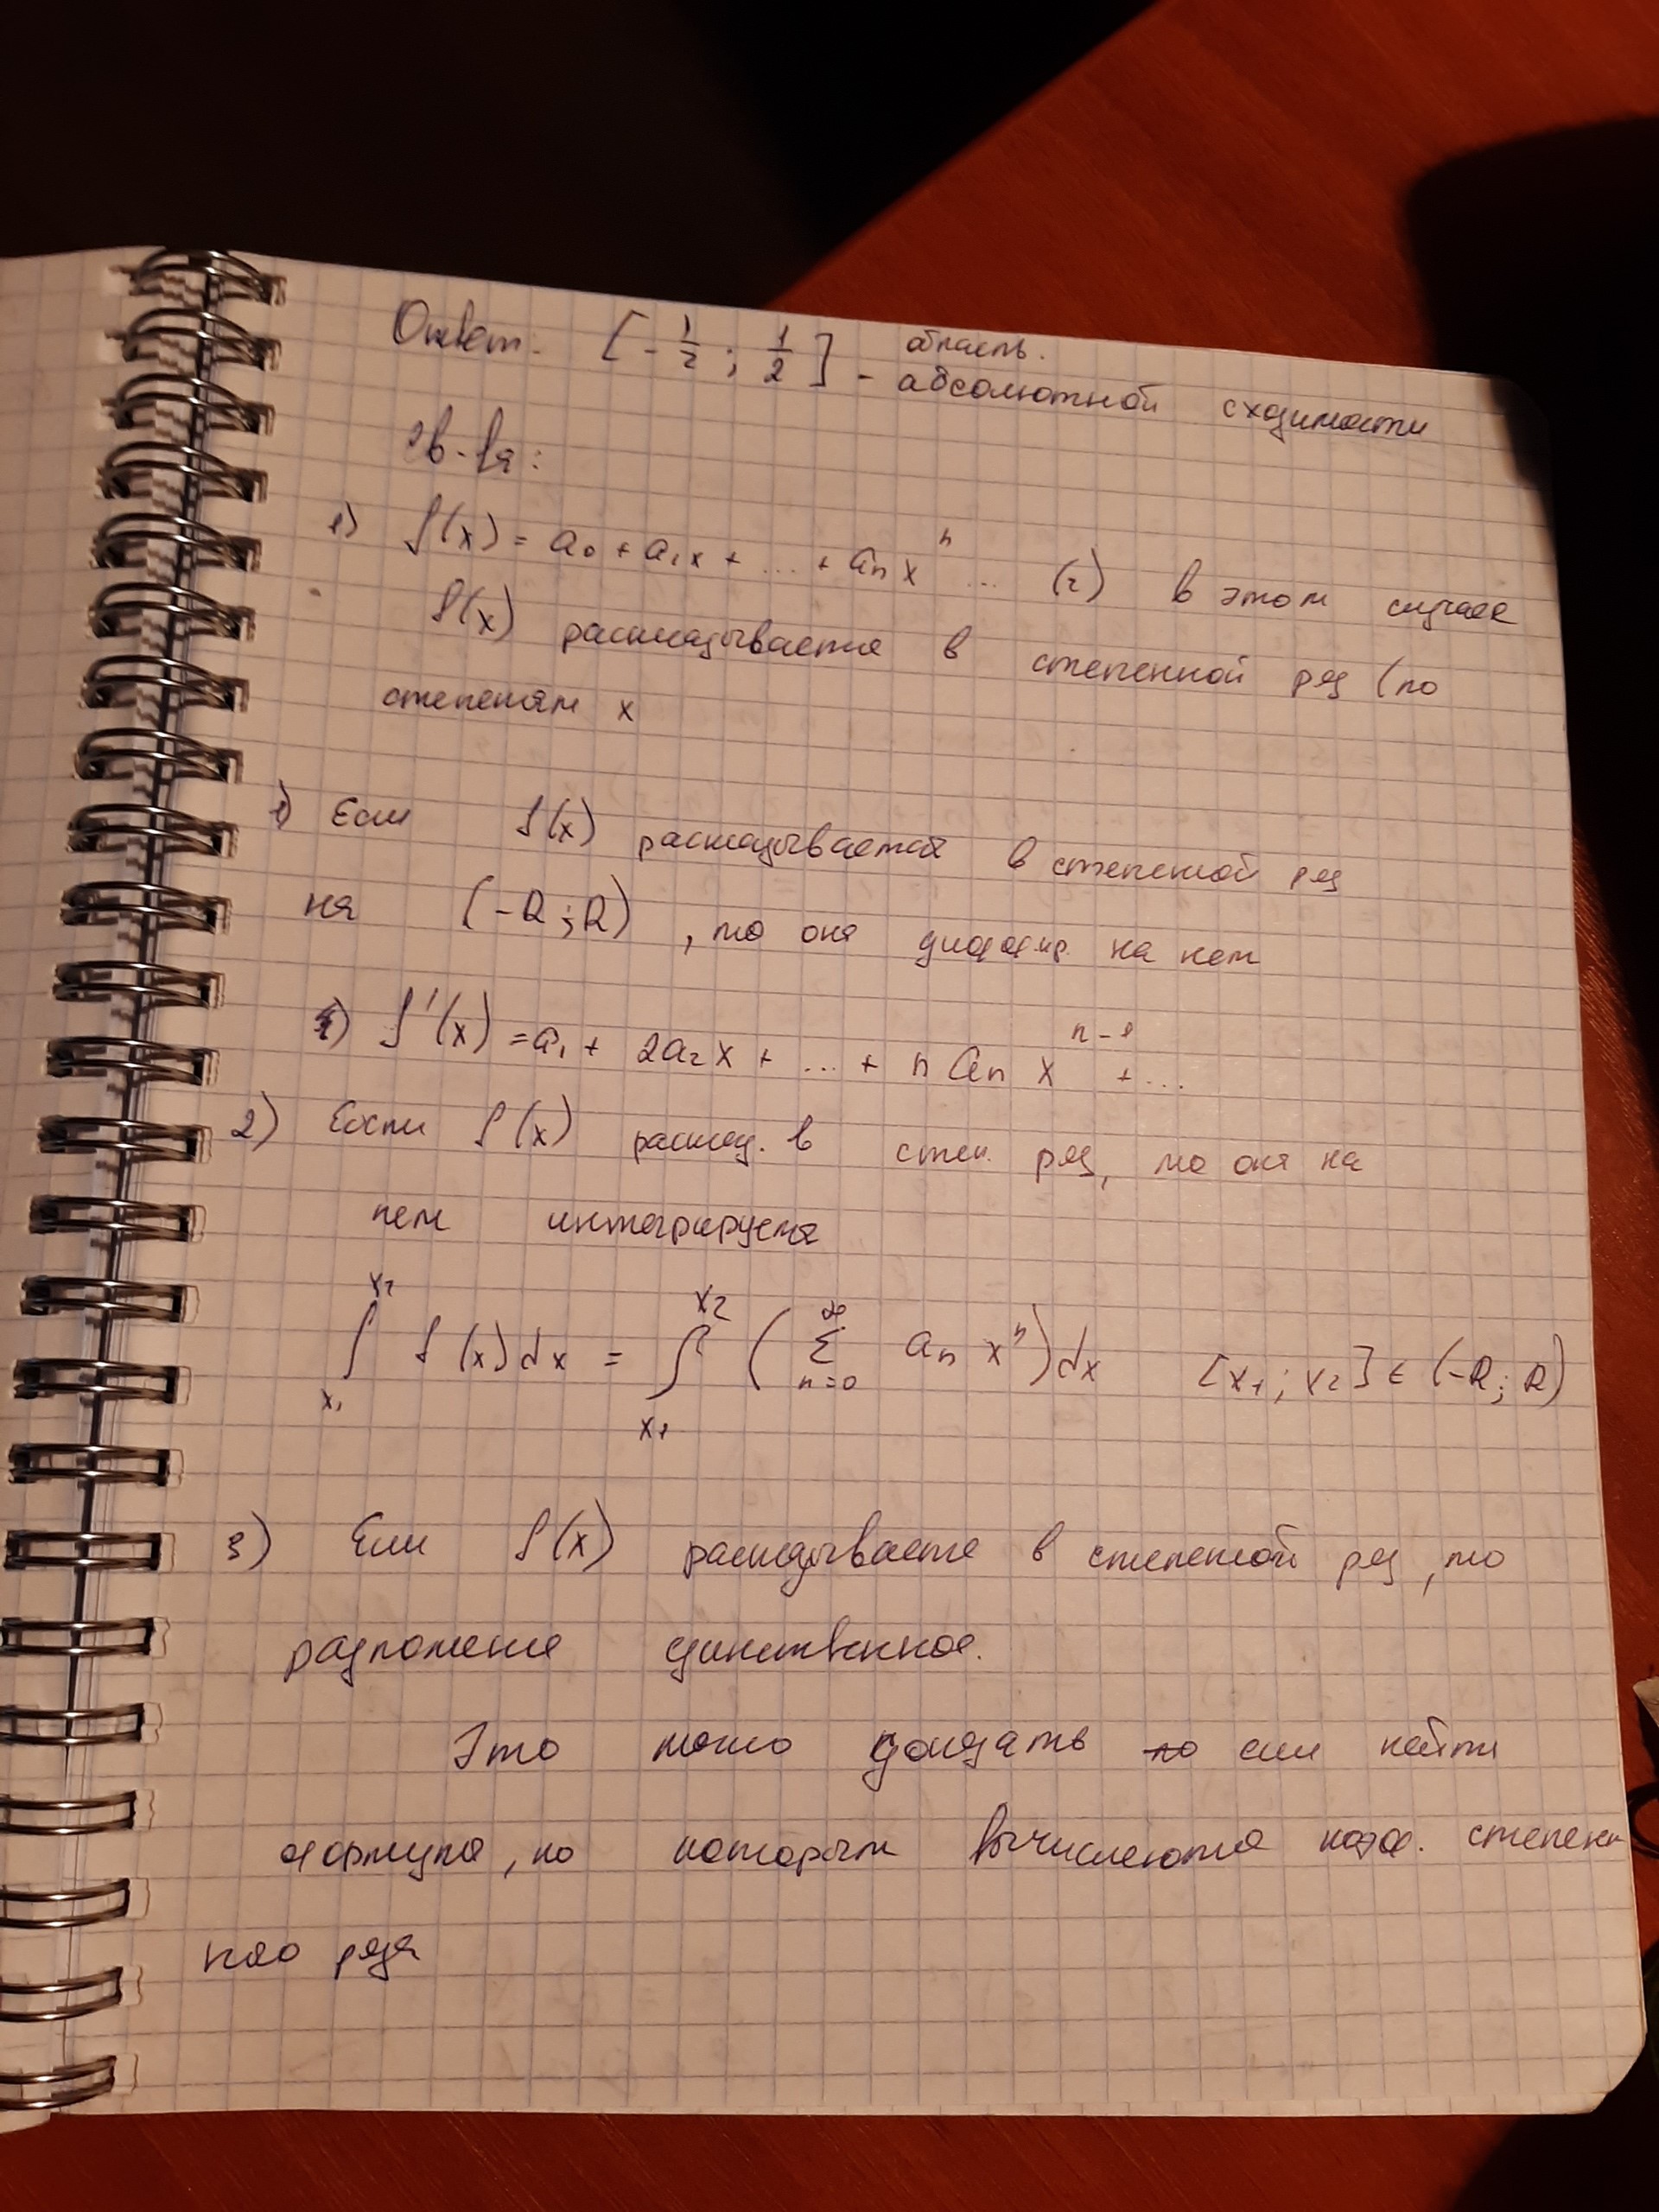 Ответ. [-1/2 ; 1/2] - область. абсолютной сходимости
Св-ва:
1) f(x) = a₀ + a₁x + ... + aₙxⁿ ... (2) в этом случае
f(x) раскладывается в степенной ряд (по
степеням x
1) Если f(x) раскладывается в степенной ряд
на (-R ; R) , то она дифф-ир. на нем
f'(x) = a₁ + 2a₂x + ... + n aₙ xⁿ⁻¹ + ...
2) Если f(x) расклад. в степ. ряд, то она на
нем интегрируема
∫ₓ₁ˣ² f(x)dx = ∫ₓ₁ˣ² (∑ₙ₌₀^∞ aₙ xⁿ)dx [x₁ ; x₂] ∈ (-R ; R)
3) Если f(x) раскладывается в степенной ряд , то
разложение единственное.
Это можно доказать если найти
формула , по которым вычисляются коэф. степен
ного ряда